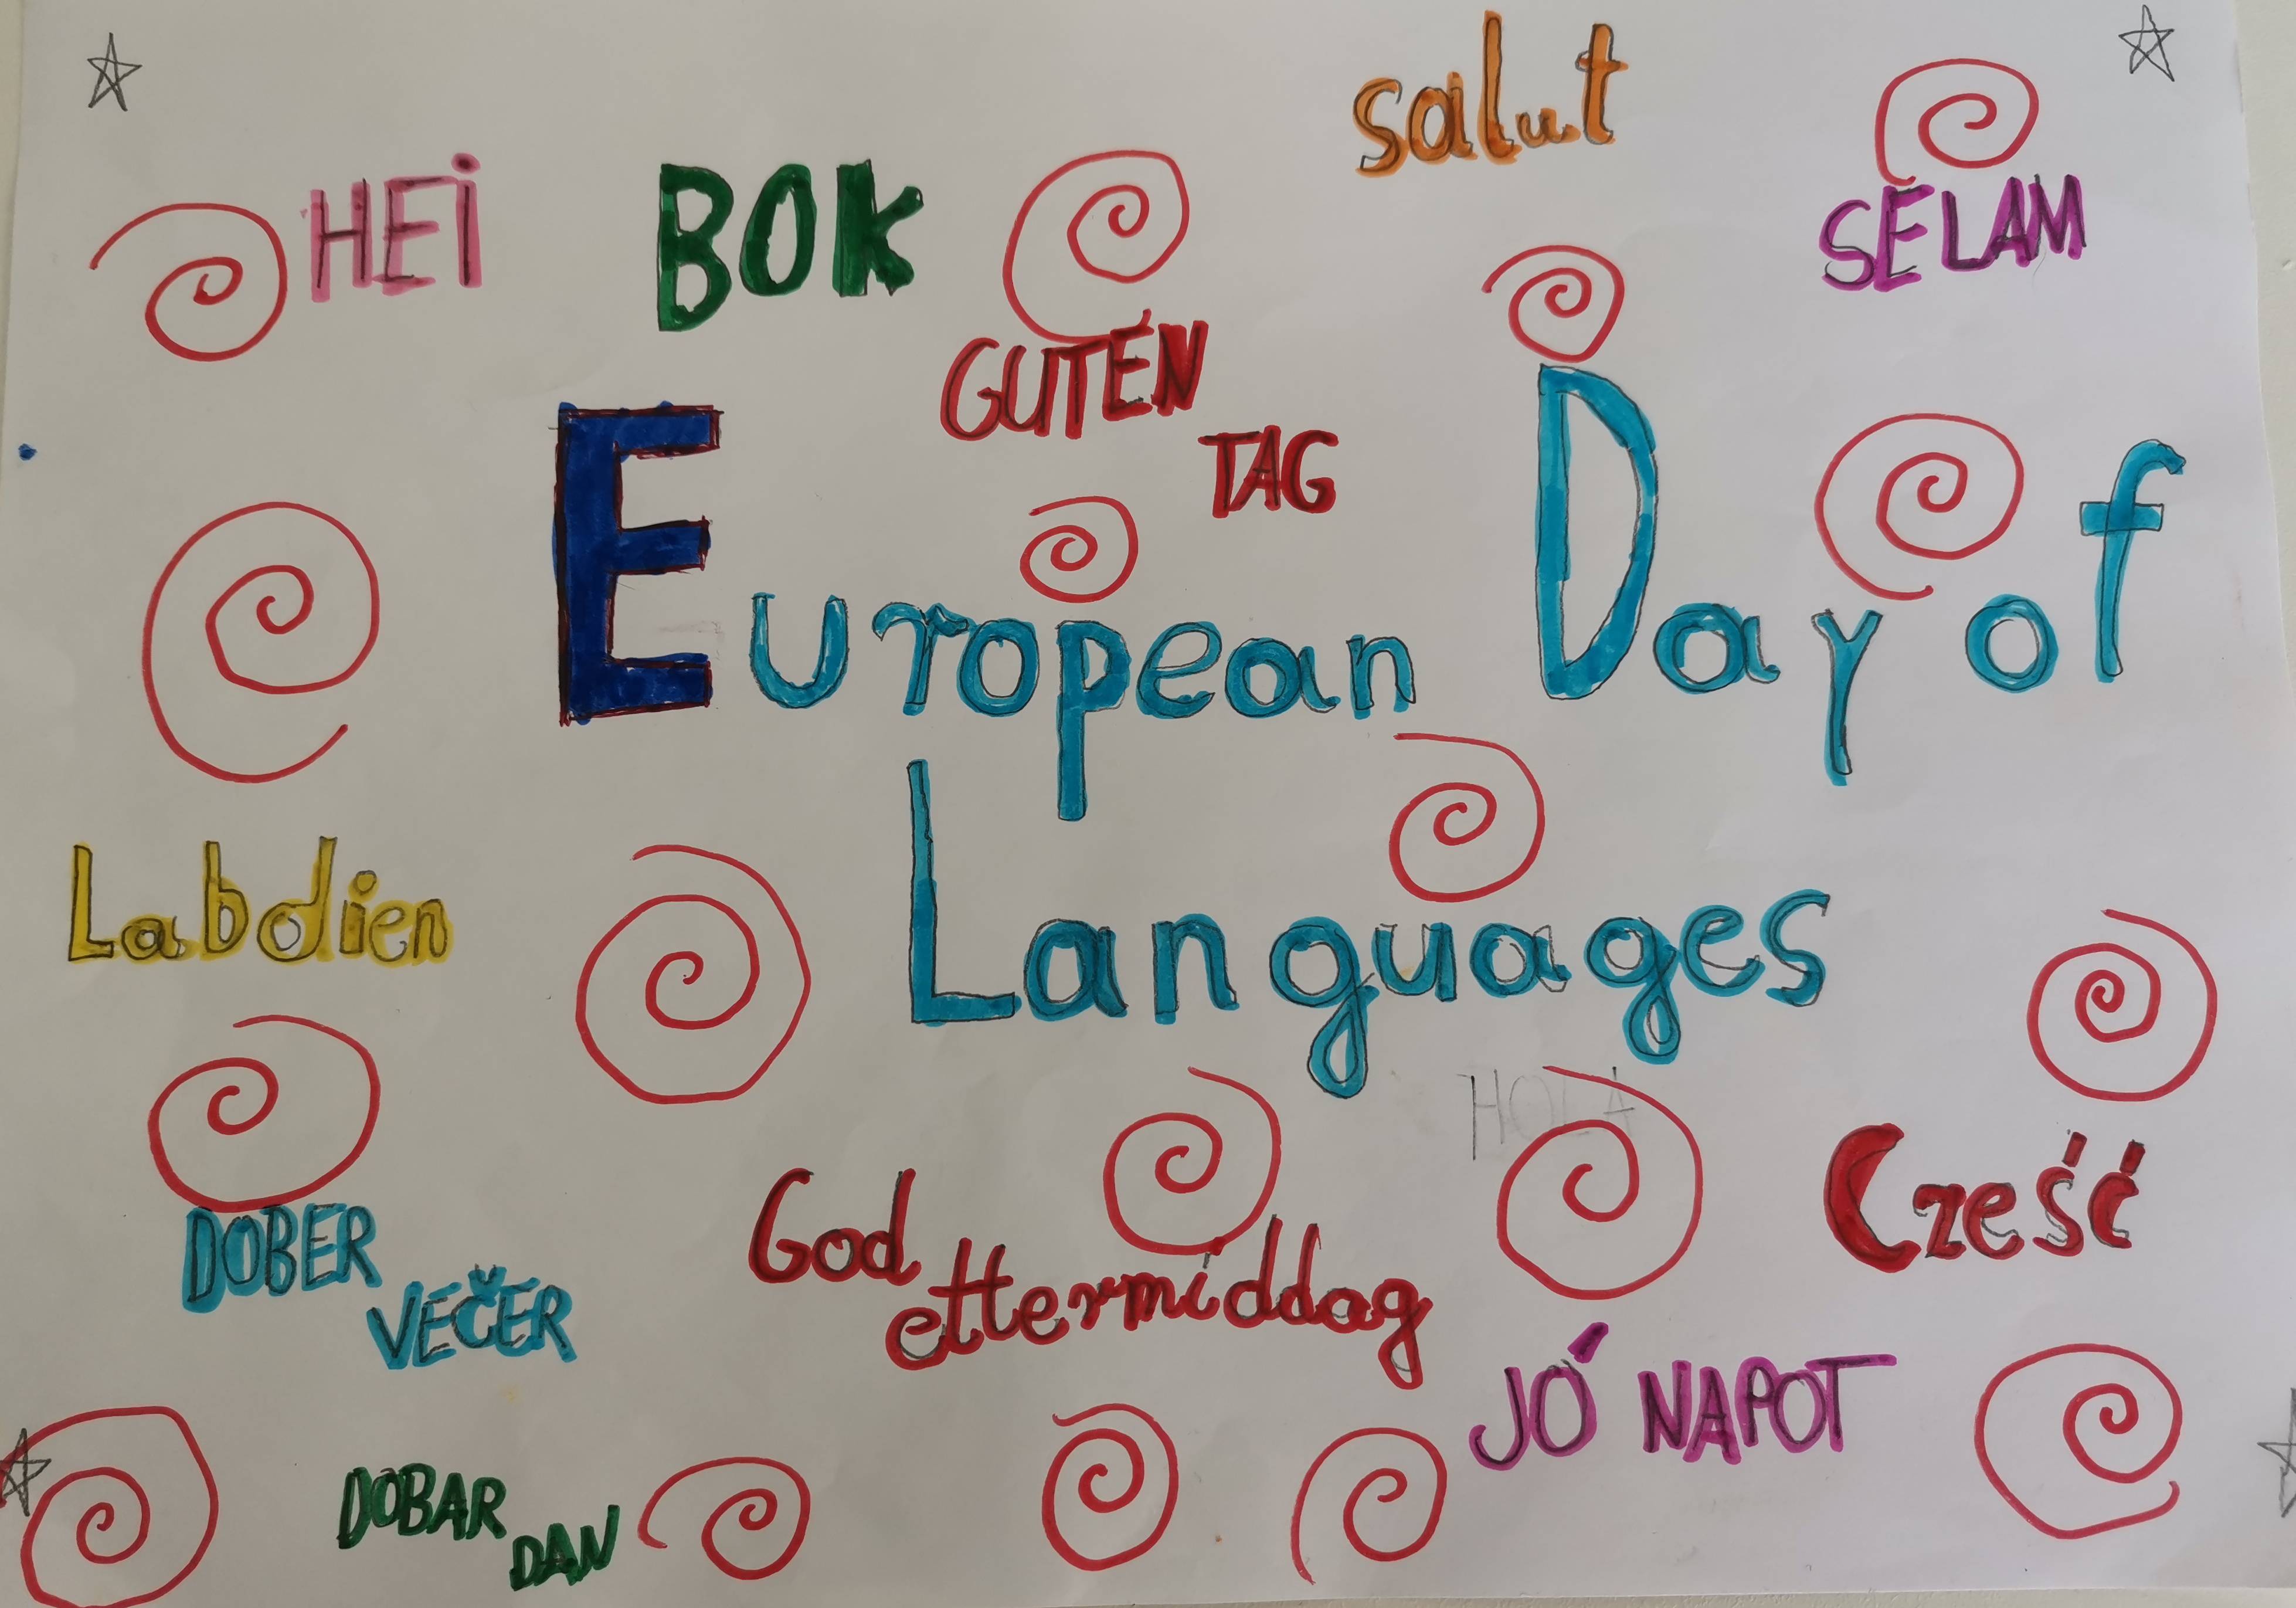 salut
HEi
BOK
SELAM
GUTEN
TAG
European Day of
Languages
Labdien
HOLA
Cześć
DOBER
VEČER
God
ettermiddag
JÓ NAPOT
DOBAR
DAN